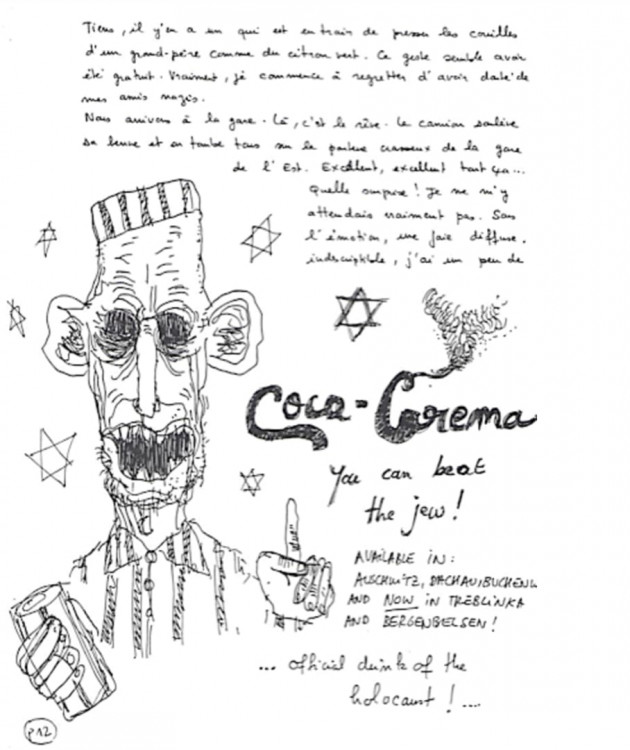 Tiens, il y'en a un qui est en train de presser les couilles
d'un grand-père comme du citron vert. Ce geste semble avoir
été gratuit. Vraiment, je commence à regretter d'avoir
mes amis nazis.
Nous arrivons à la gare. Là, c'est le rêve. Le camion soulève
sa benne et on tombe tous sur le parterre crasseux de la gare
de l'Est. Excellent, excellent tout ça...
Quelle surprise ! Je ne m'y
attendais vraiment pas. Sous
l'émotion, une joie diffuse,
j'ai un peu de
Coca-Crema
You can beat
the jew !
AVAILABLE IN :
AUSCHWITZ, DACHAU, BUCHENW
AND NOW IN TREBLINKA
AND BERGENBELSEN !
... official drink of the
holocaust ! ...
P12